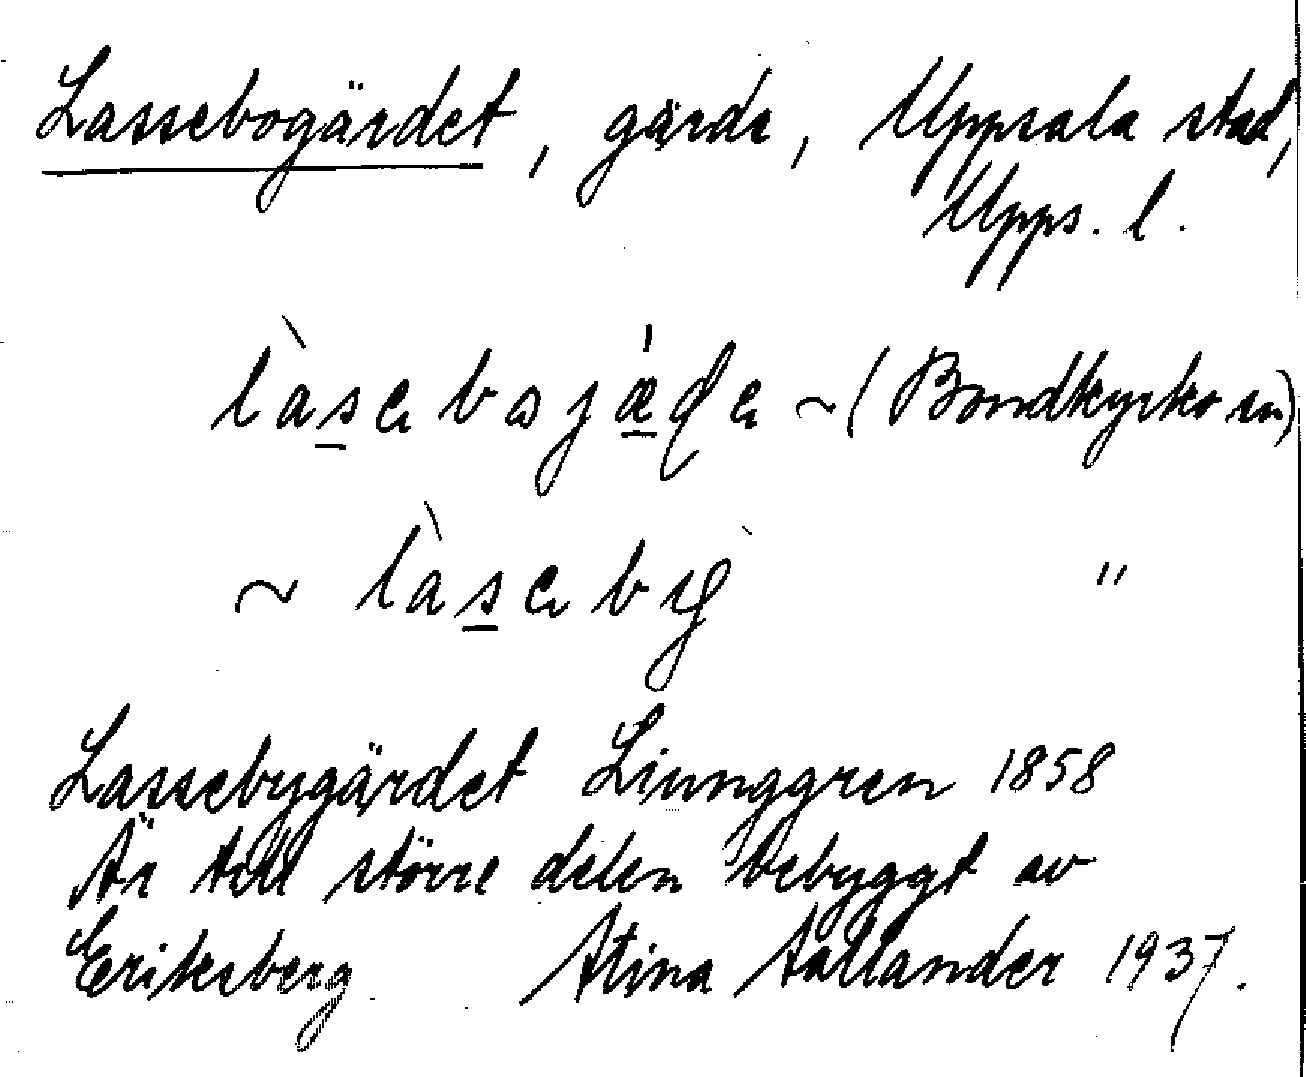 Lassebogärdet, gärde, Uppsala stad,
Upps. l.
~ (Bondkyrko sn)
~ "
Lassebygärdet Ljunggren 1858
Är till större delen bebyggt av
Eriksberg Stina Hallander 1937.